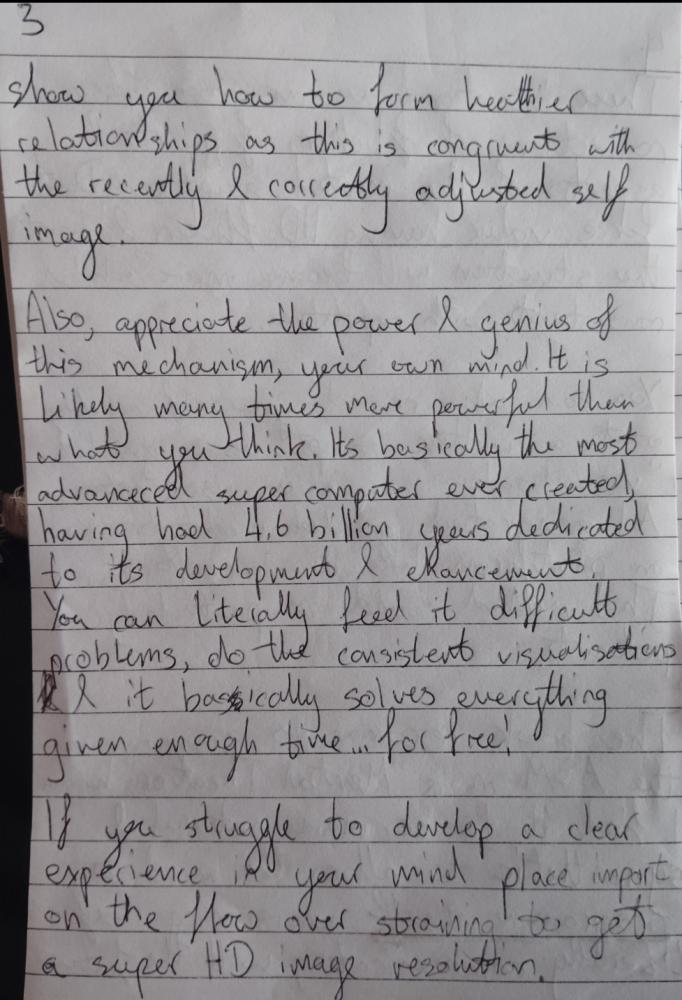 3
show you how to form healthier
relationships as this is congruent with
the recently & correctly adjusted self
image.
Also, appreciate the power & genius of
this mechanism, your own mind. It is
likely many times more powerful than
what you think. Its basically the most
advanceced super computer ever created,
having had 4.6 billion years dedicated
to its development & ehancement.
You can literally feed it difficult
problems, do the consistent visualisations
& it basically solves everything
given enough time... for free!
If you struggle to develop a clear
experience in your mind place import
on the flow over straining to get
a super HD image resolution.